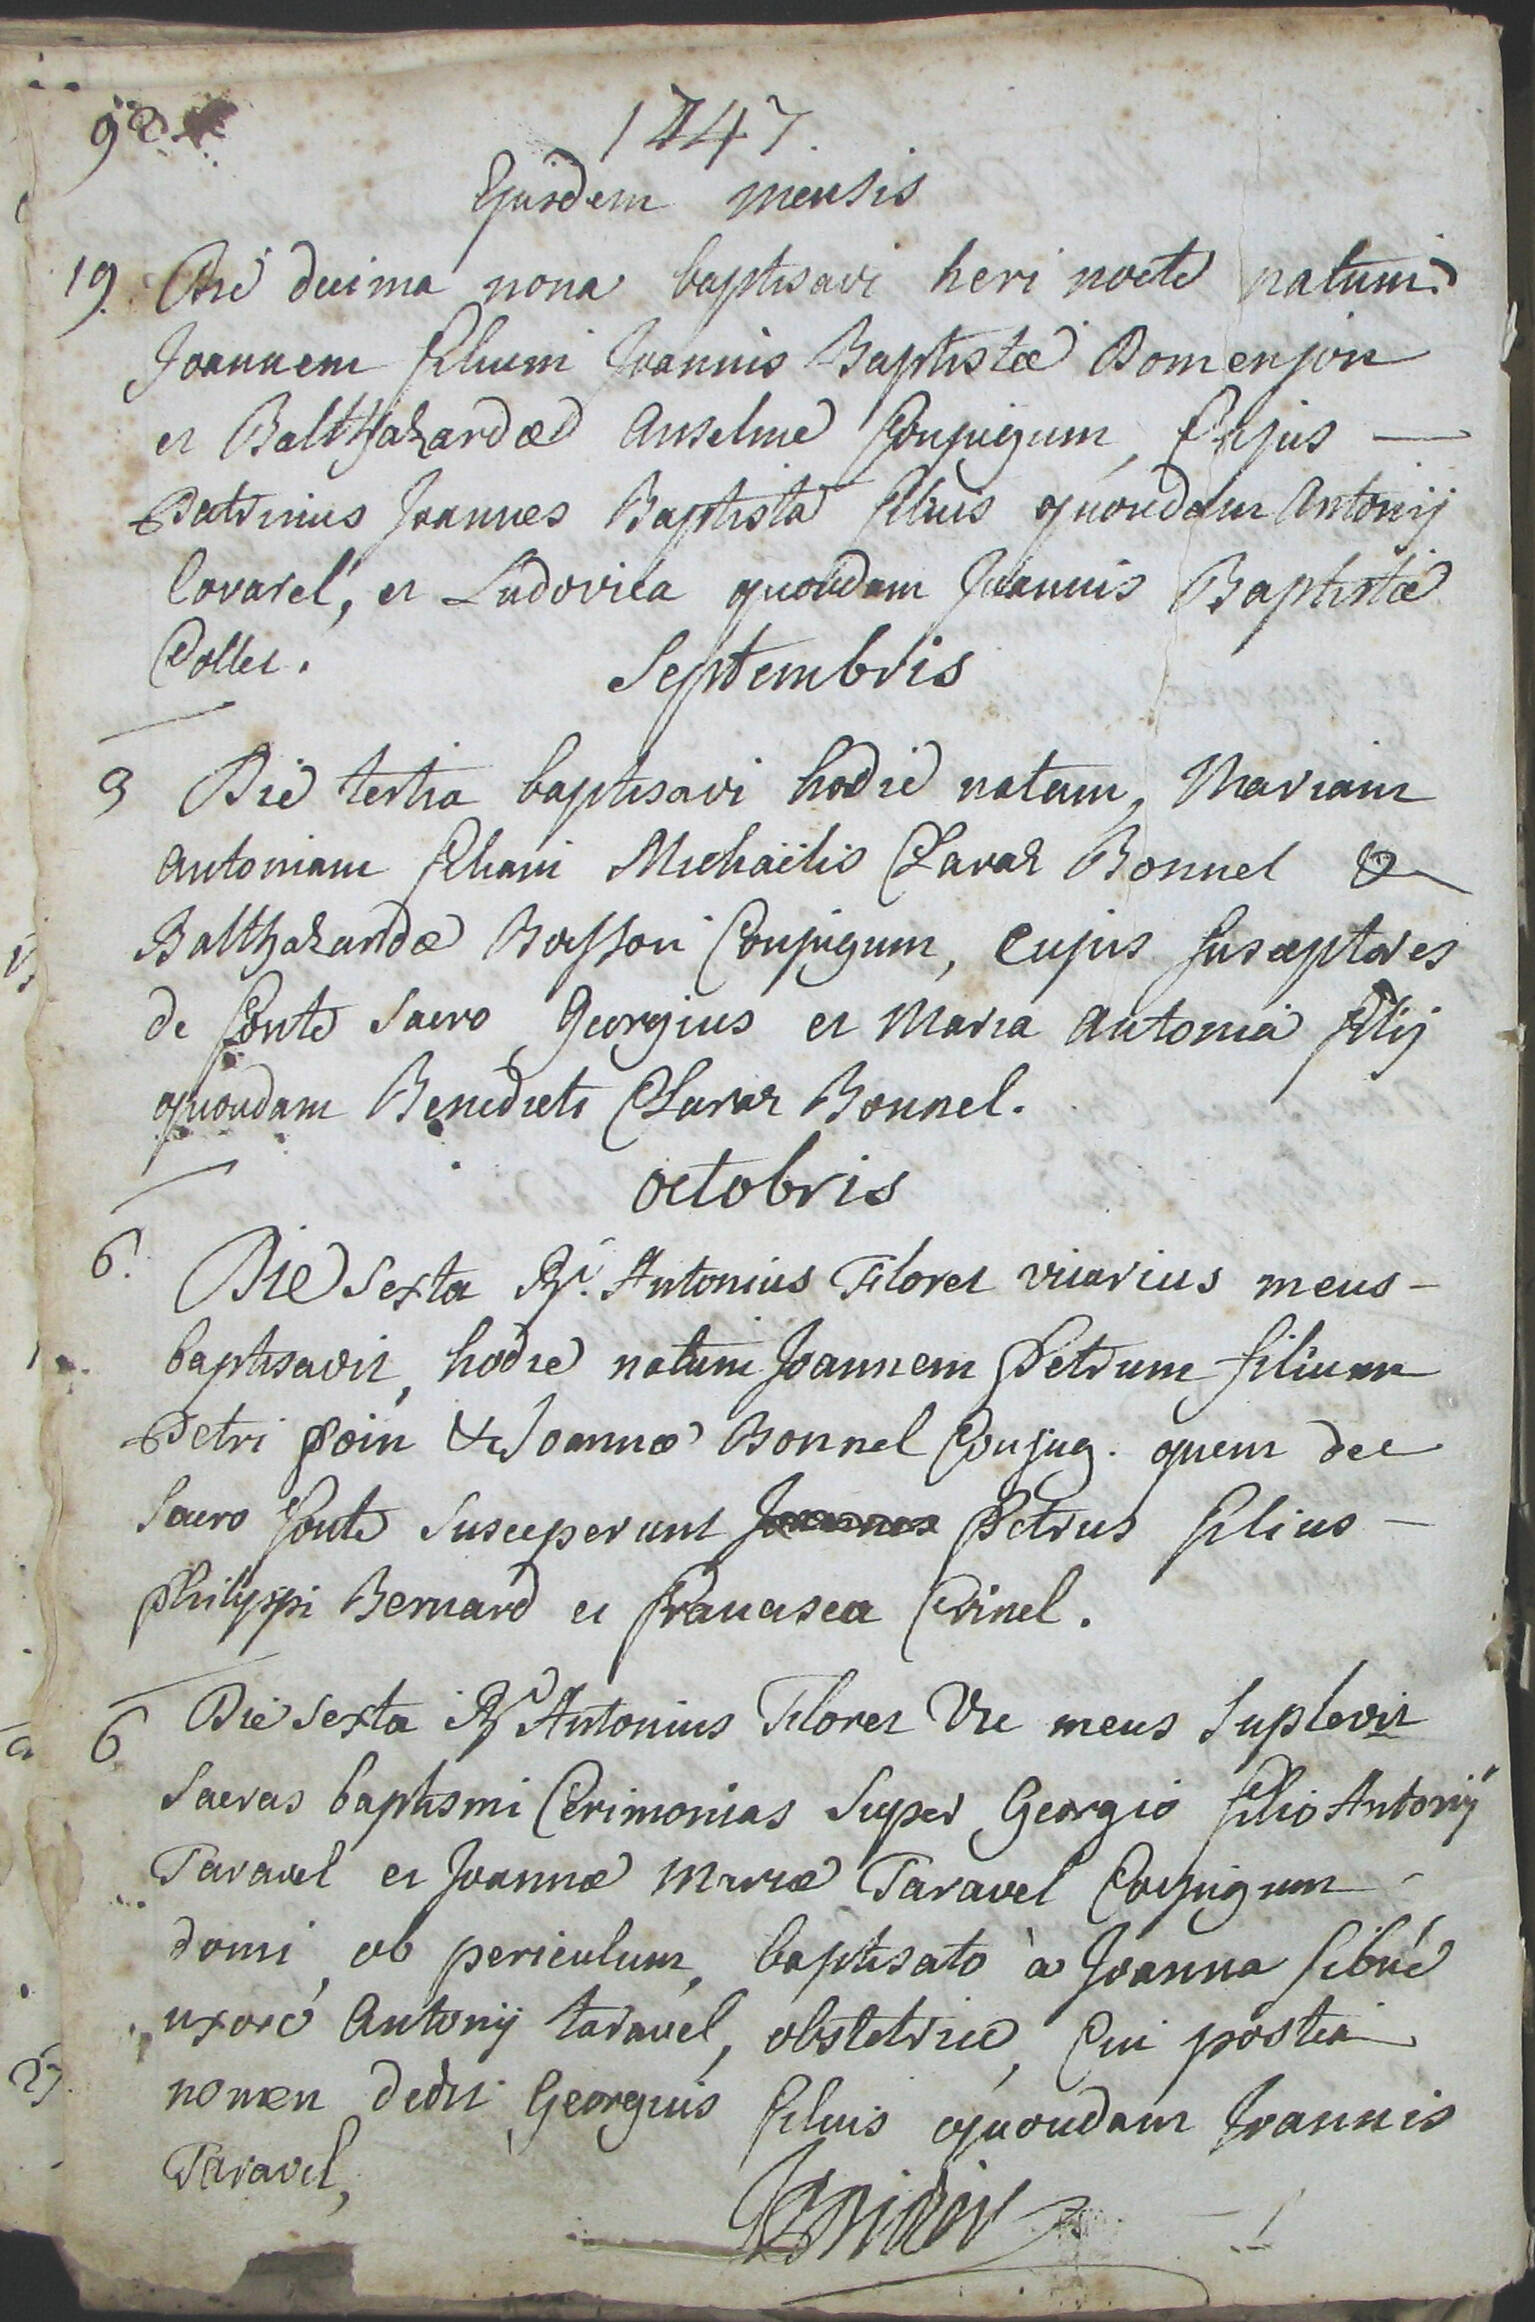 98
1747.
Ejusdem mensis
19. Die decima nona baptisavi heri nocte natum
Joannem filium Joannis Baptistæ Domenjon
et Balthazardæ Anselme Conjugum, Cujus —
Patrinus Joannes Baptista filius quondam Antonij
Covarel, et Ludovica quondam Joannis Baptistæ
Collet.
Septembris
3 Die tertia baptisavi hodie natam, Mariam
Antoniam filiam Michaëlis Clavaz Bonnel &
Balthazardæ Bosson Conjugum, Cujus susceptores
de fonte sacro Georgius et Maria Antonia filij
quondam Benedicti Clavaz Bonnel.
octobris
6. Die sexta Rd. Antonius Floret vicarius meus -
baptisavit, hodie natum Joannem Petrum filium
Petri Poin & Joannæ Bonnel Conjug. quem de
sacro fonte susceperunt Petrus filius -
Philippi Bernard et francisca Crinel.
6. Die sexta Rd Antonius Floret Vic meus suplevit
sacras baptismi Cerimonias super Georgio filio Antonij
Taravel et Joannæ Mariæ Taravel Conjugum -
domi, ob periculum, baptisato à Joanna sibué
uxore Antonij taravel, obstetrice, Cui postea
nomen dedit Georgius filius quondam Joannis
Taravel,